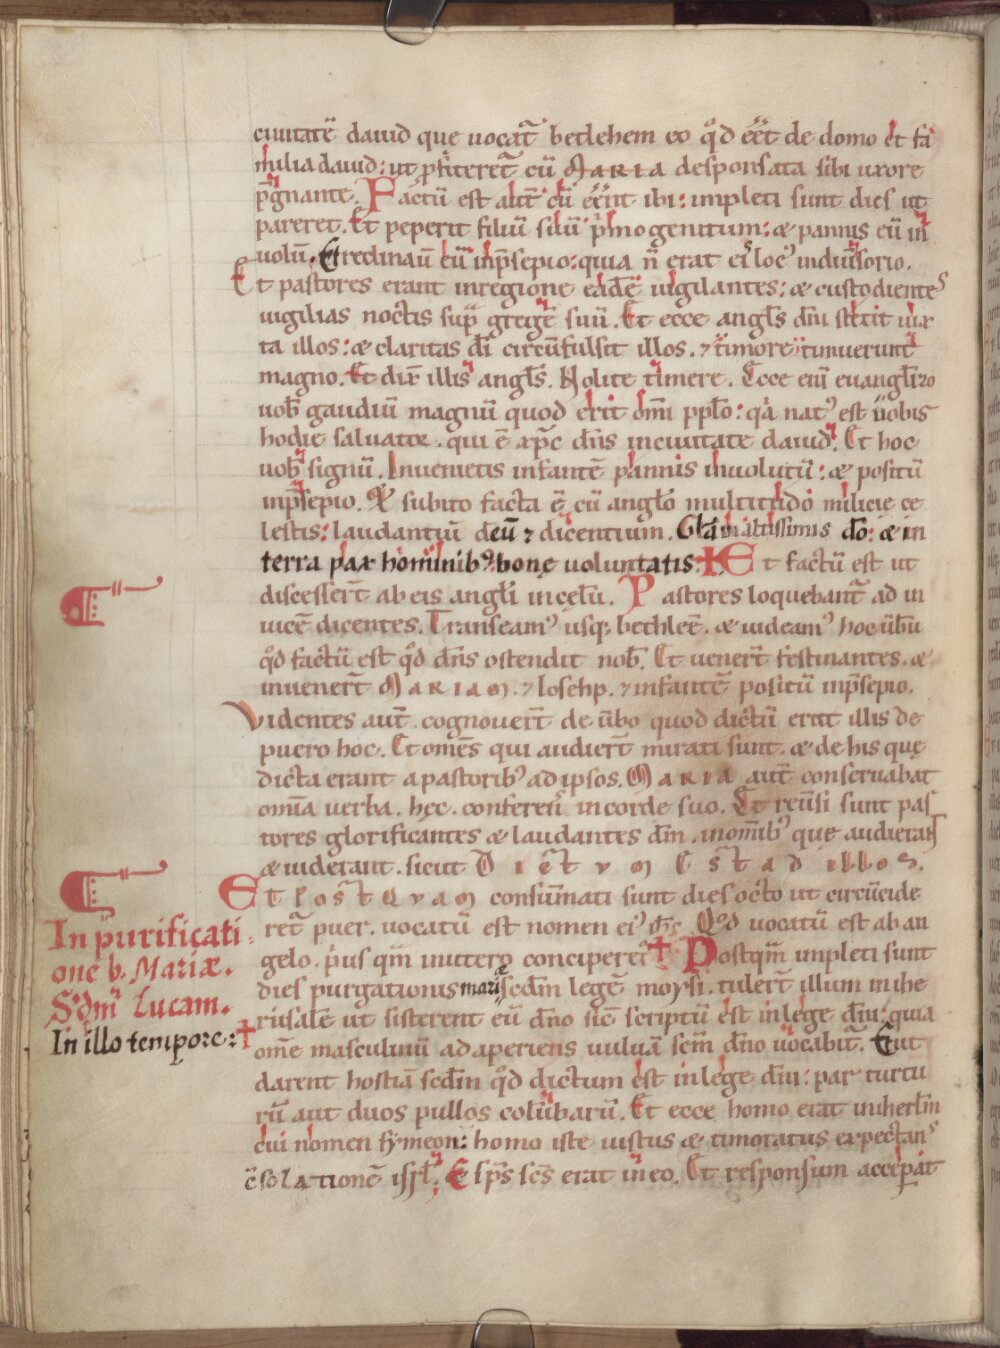 ciuitatē dauid que uocat᷑ betlehem eo qd̄ eēt de domo et fa
milia dauid: ut ꝓfiteret᷑ cū MARIA desponsata sibi uxore
p̄gnante. Factū est aut̄ cū eēnt ibi: impleti sunt dies ut
pareret. Et peperit filiū suū p̄mogenitum: & pannis eū in
uolū. Et reclinaū eū inp̄sepio: quia n̄ erat ei loc᾽ indiuīsorio.
Et pastores erant inregione eadē uigilantes: & custodientes
uigilias noctis sup̄ gregē suū. Et ecce angls̄ dn̄i stetit iux
ta illos: & claritas dī circūfulsit illos. ⁊ timore timuerunt
magno. Et dix̄ illis angls̄. Nolite timere. Ecce eni euanglizo
uob̄ gaudiū magnū quod erit om̄i pplō: qa nat᾽ est uobis
hodie saluator. qui ē xp̄c dn̄s inciuitate dauid. Et hoc
uob̄ signū. Inuenietis infantē pannis inuolutū: & positū
inp̄sepio. Et subito facta ē cū anglo multitudo milicie ce
lestis: laudantiū deū ⁊ dicentium. Glā in altissimis dō: & in
terra pax hominib᾽ bonę uoluntatis: Et factū est ut
discesser̄t ab eis angli incelū. Pastores loquebant᷑ ad in
uicē dicentes. Transeam᾽ usq; bethleē. & uideam᾽ hoc ūbū
qd̄ factū est qd̄ dn̄s ostendit nob̄. Et uener̄t festinantes. &
inuener̄t MARIAM. ⁊ Iosehp. ⁊ infantē positū inp̄sepio.
Videntes aut̄ cognouer̄t de ūbo quod dictū erat illis de
puero hoc. Et omēs qui audier̄t mirati sunt. & de his quę
dicta erant a pastorib᾽ ad ipsos. MARIA aut̄ conseruabat
omīa uerba. hęc. conferens incorde suo. Et reūsi sunt pas
tores glorificantes & laudantes dm̄. inomīb᾽ que audierant
& uiderant. sicut DICTVM EST AD illos.
ET POSTQVAM consūmati sunt dies octo ut circūcide
ret᷑ puer. uocatū est nomen ei᾽ ih̄c Qd̄ uocatū est ab an
gelo. pus qm̄ inutero conciperet᷑ Postqm̄ impleti sunt
dies purgationis marię scdm̄ legē moysi. tuler̄t illum inihe
rusalē ut sisterent eū dn̄o sic̄ scriptū est inlege dn̄i: quia
omē masculinū adaperiens uuluā scm̄ dn̄o uocabit᷑. Et ut
darent hostiā scdm̄ qd̄ dictum est inlege dn̄i: par turtu
rū aut duos pullos colūbarū. Et ecce homo erat inherlm̄
cui nomen symeon: homo iste iustus & timoratus expectans
cōsolationē isrl̄; & sps̄ scs̄ erat in eo. Et responsum acceperat
In purificati
one b. Mariæ.
Scdm̄ Lucam.
In illo tempore: